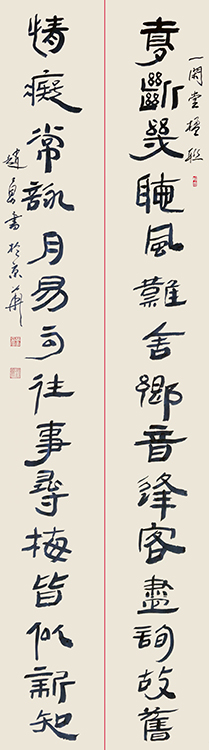 一閑堂楹聯
夢斷幾聽風難舍鄉音逢客盡詢故舊
情癡常詠月易勾往事尋梅皆似新知
趙勇書於京華